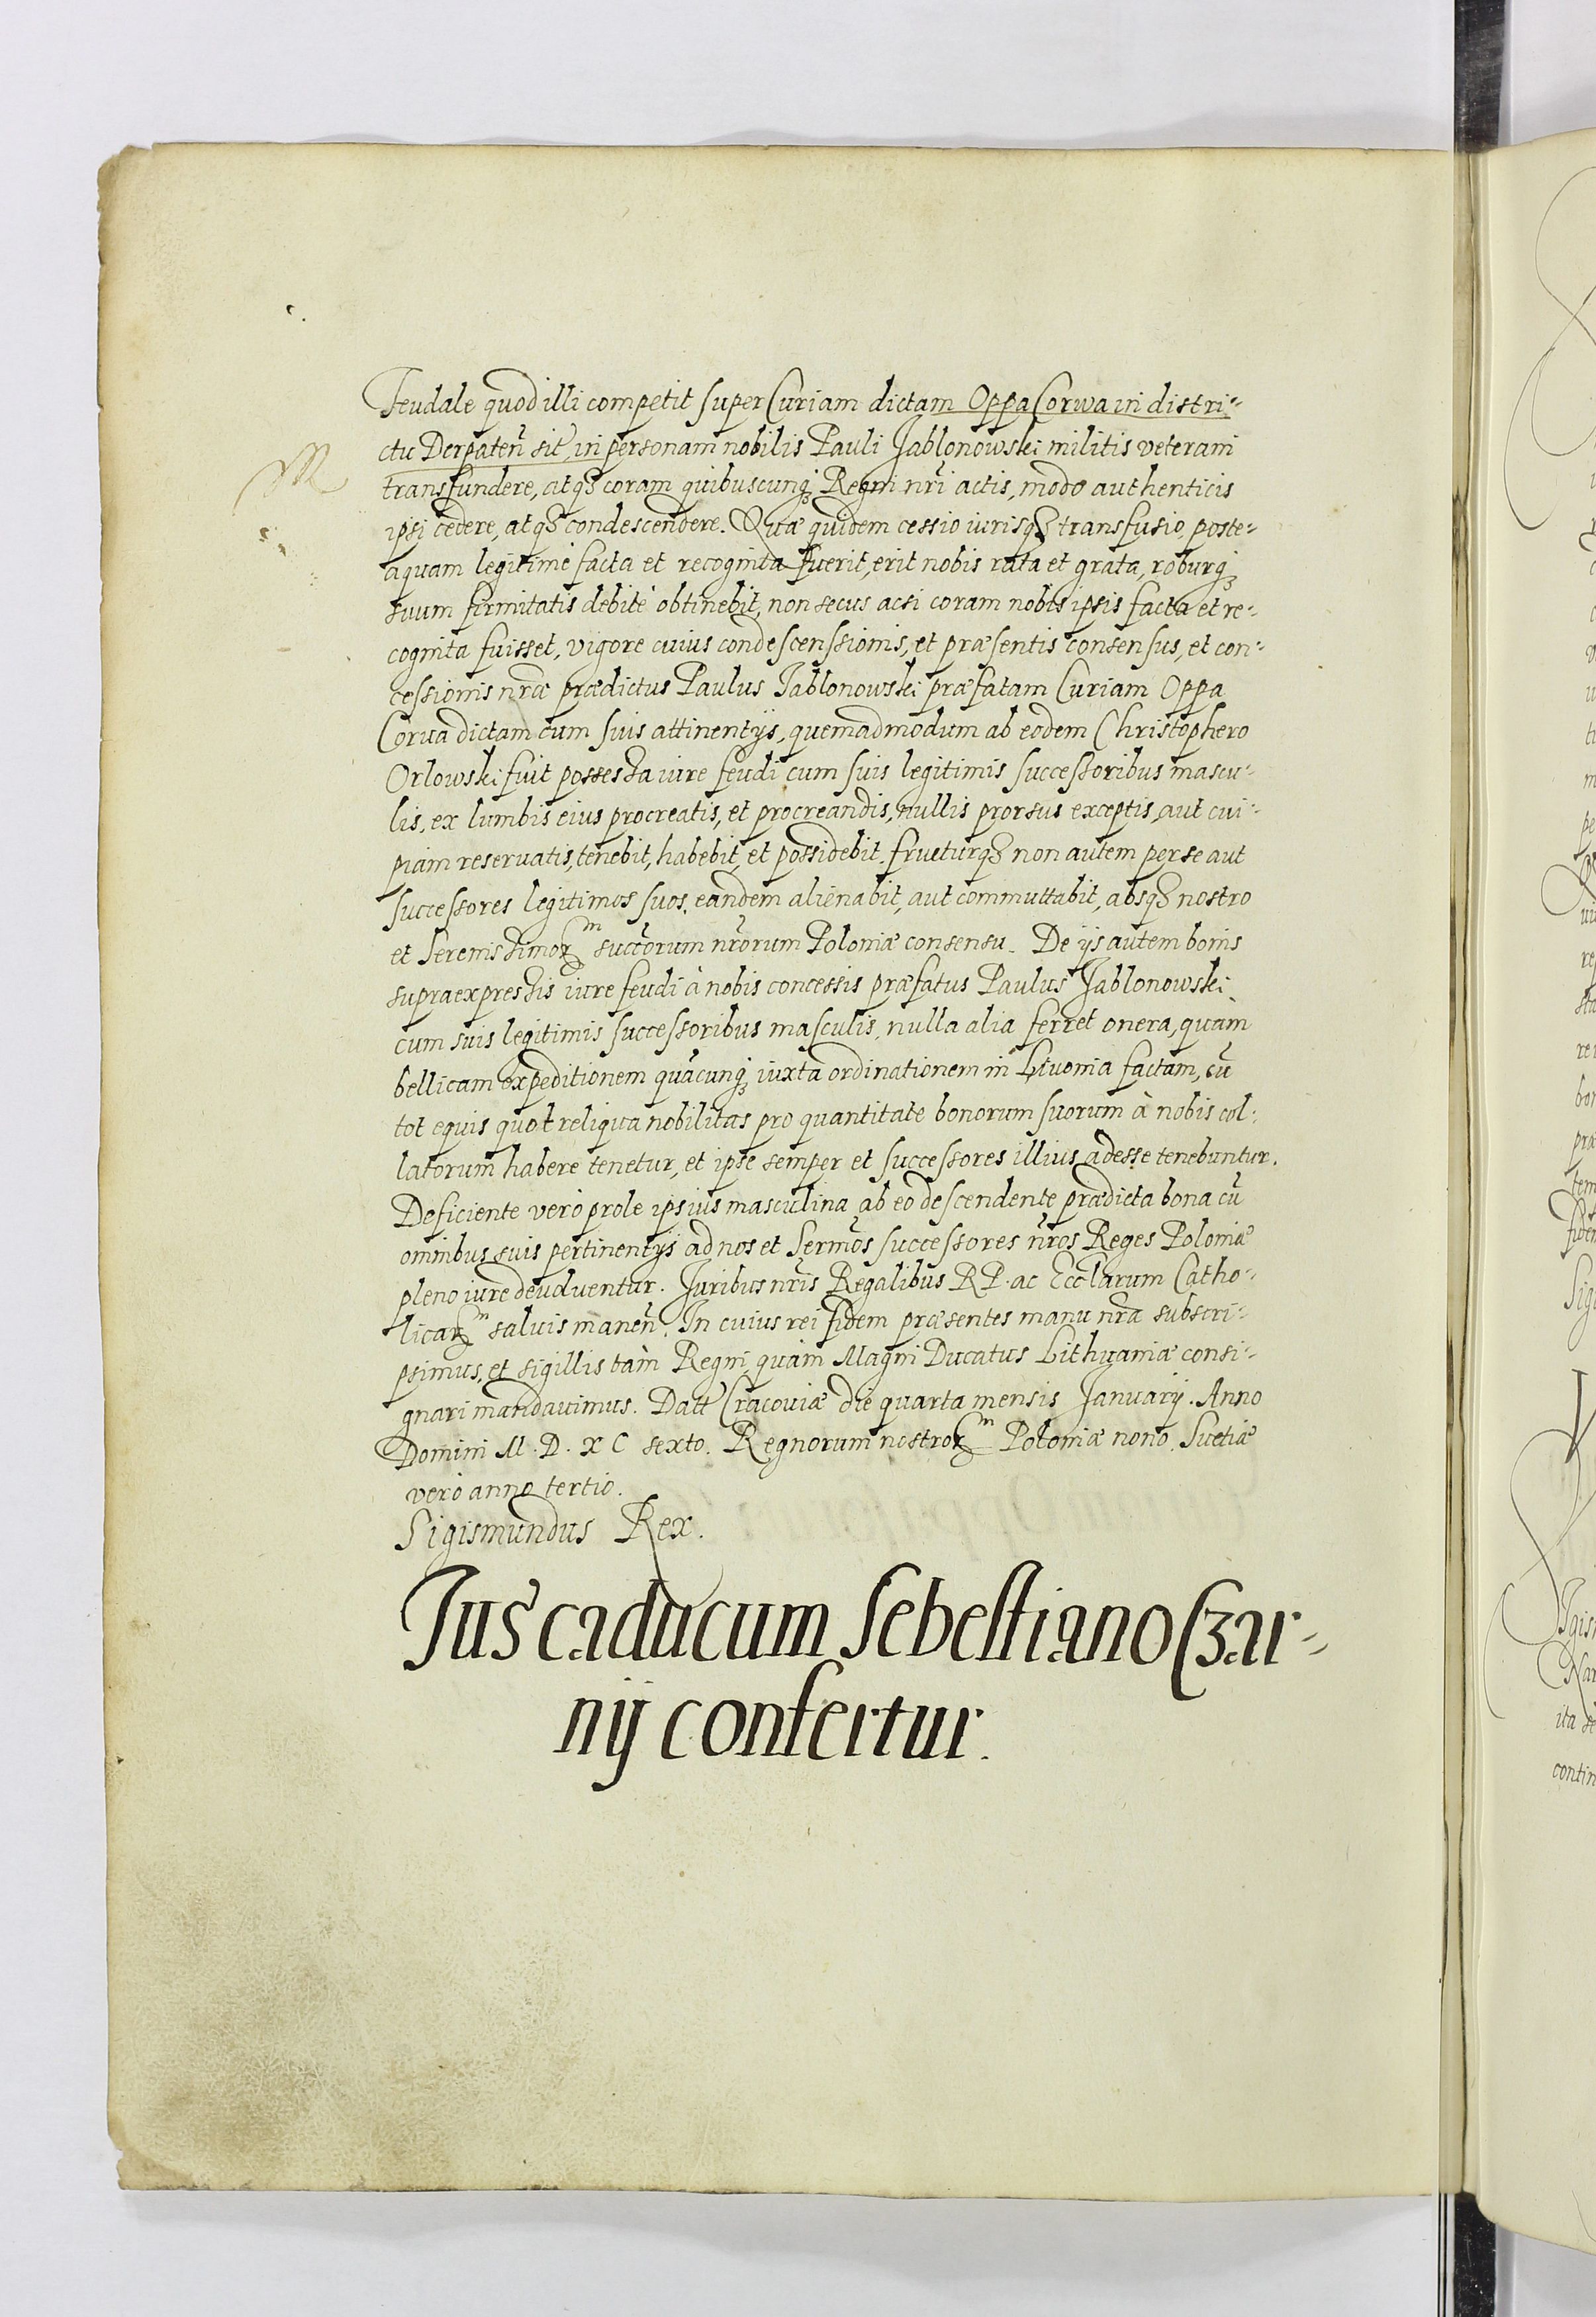 Feudale quod illi competit super Curiam dictam Oppa Corwa in distri-
ctu Derpaten̄ sit̄, in personam nobilis Pauli Jablonowski militis veterani
transfundere, atq3 coram quibuscunq3 Regni nr̄i actis, modo authenticis
ipsi cedere, atq3 condescendere. Quæ quidem cessio iurisq3 transfusio, poste-
aquam legitimè facta et recognita fuerit, erit nobis rata et grata, roburq3
suum firmitatis debitè obtinebit, non secus acsi coram nobis ipsis facta et re-
cognita fuisset, vigore cuius condescenssionis, et præsentis consensus, et con-
cessionis nr̄æ prædictus Paulus Jablonowski præfatam Curiam Oppa
Corua dictam cum suis attinentijs, quemadmodum ab eodem Christophero
Orlowski fuit possessa iure feudi cum suis legitimis successoribus mascu-
lis, ex lumbis eius procreatis, et procreandis, nullis prorsus exceptis, aut cui-
piam reseruatis, tenebit, habebit, et possidebit, frueturq3 non autem per se aut
successores legitimos suos, eandem alienabit, aut commuttabit, absq3 nostro
et Serenissimoꝝ^m succorum nr̄orum Poloniæ consensu. De ijs autem bonis
supraexpressis iure feudi à nobis concessis præfatus Paulus Jablonowski
cum suis legitimis successoribus masculis, nulla alia ferret onera, quàm
bellicam expeditionem quācunq3 iuxta ordinationem in Liuonia factam, cū
tot equis quot reliqua nobilitas pro quantitate bonorum suorum à nobis col-
latorum habere tenetur, et ipse semper et successores illius adesse tenebuntur.
Deficiente verò prole ipsius masculina ab eo descendente prædicta bona cū
omnibus suis pertinentijs ad nos et Serm̄os successores nr̄os Reges Poloniæ
pleno iure deuoluentur. Juribus nr̄is Regalibus RP. ac Eccl̄arum Catho-
licaꝝ^m saluis manen̄. In cuius rei fidem præsentes manu nr̄a subscri-
psimus, et sigillis tàm Regni, quàm Magni Ducatus Lithuaniæ consi-
gnari mandauimus. Datt Cracouiæ die quarta mensis Januarij. Anno
Domini M. D. XC sexto. Regnorum nostroꝝ^m Poloniæ nono, Suetiæ
verò anno tertio.
Sigismundus Rex.
Jus caducum Sebestiano Czar-
nij confertur.